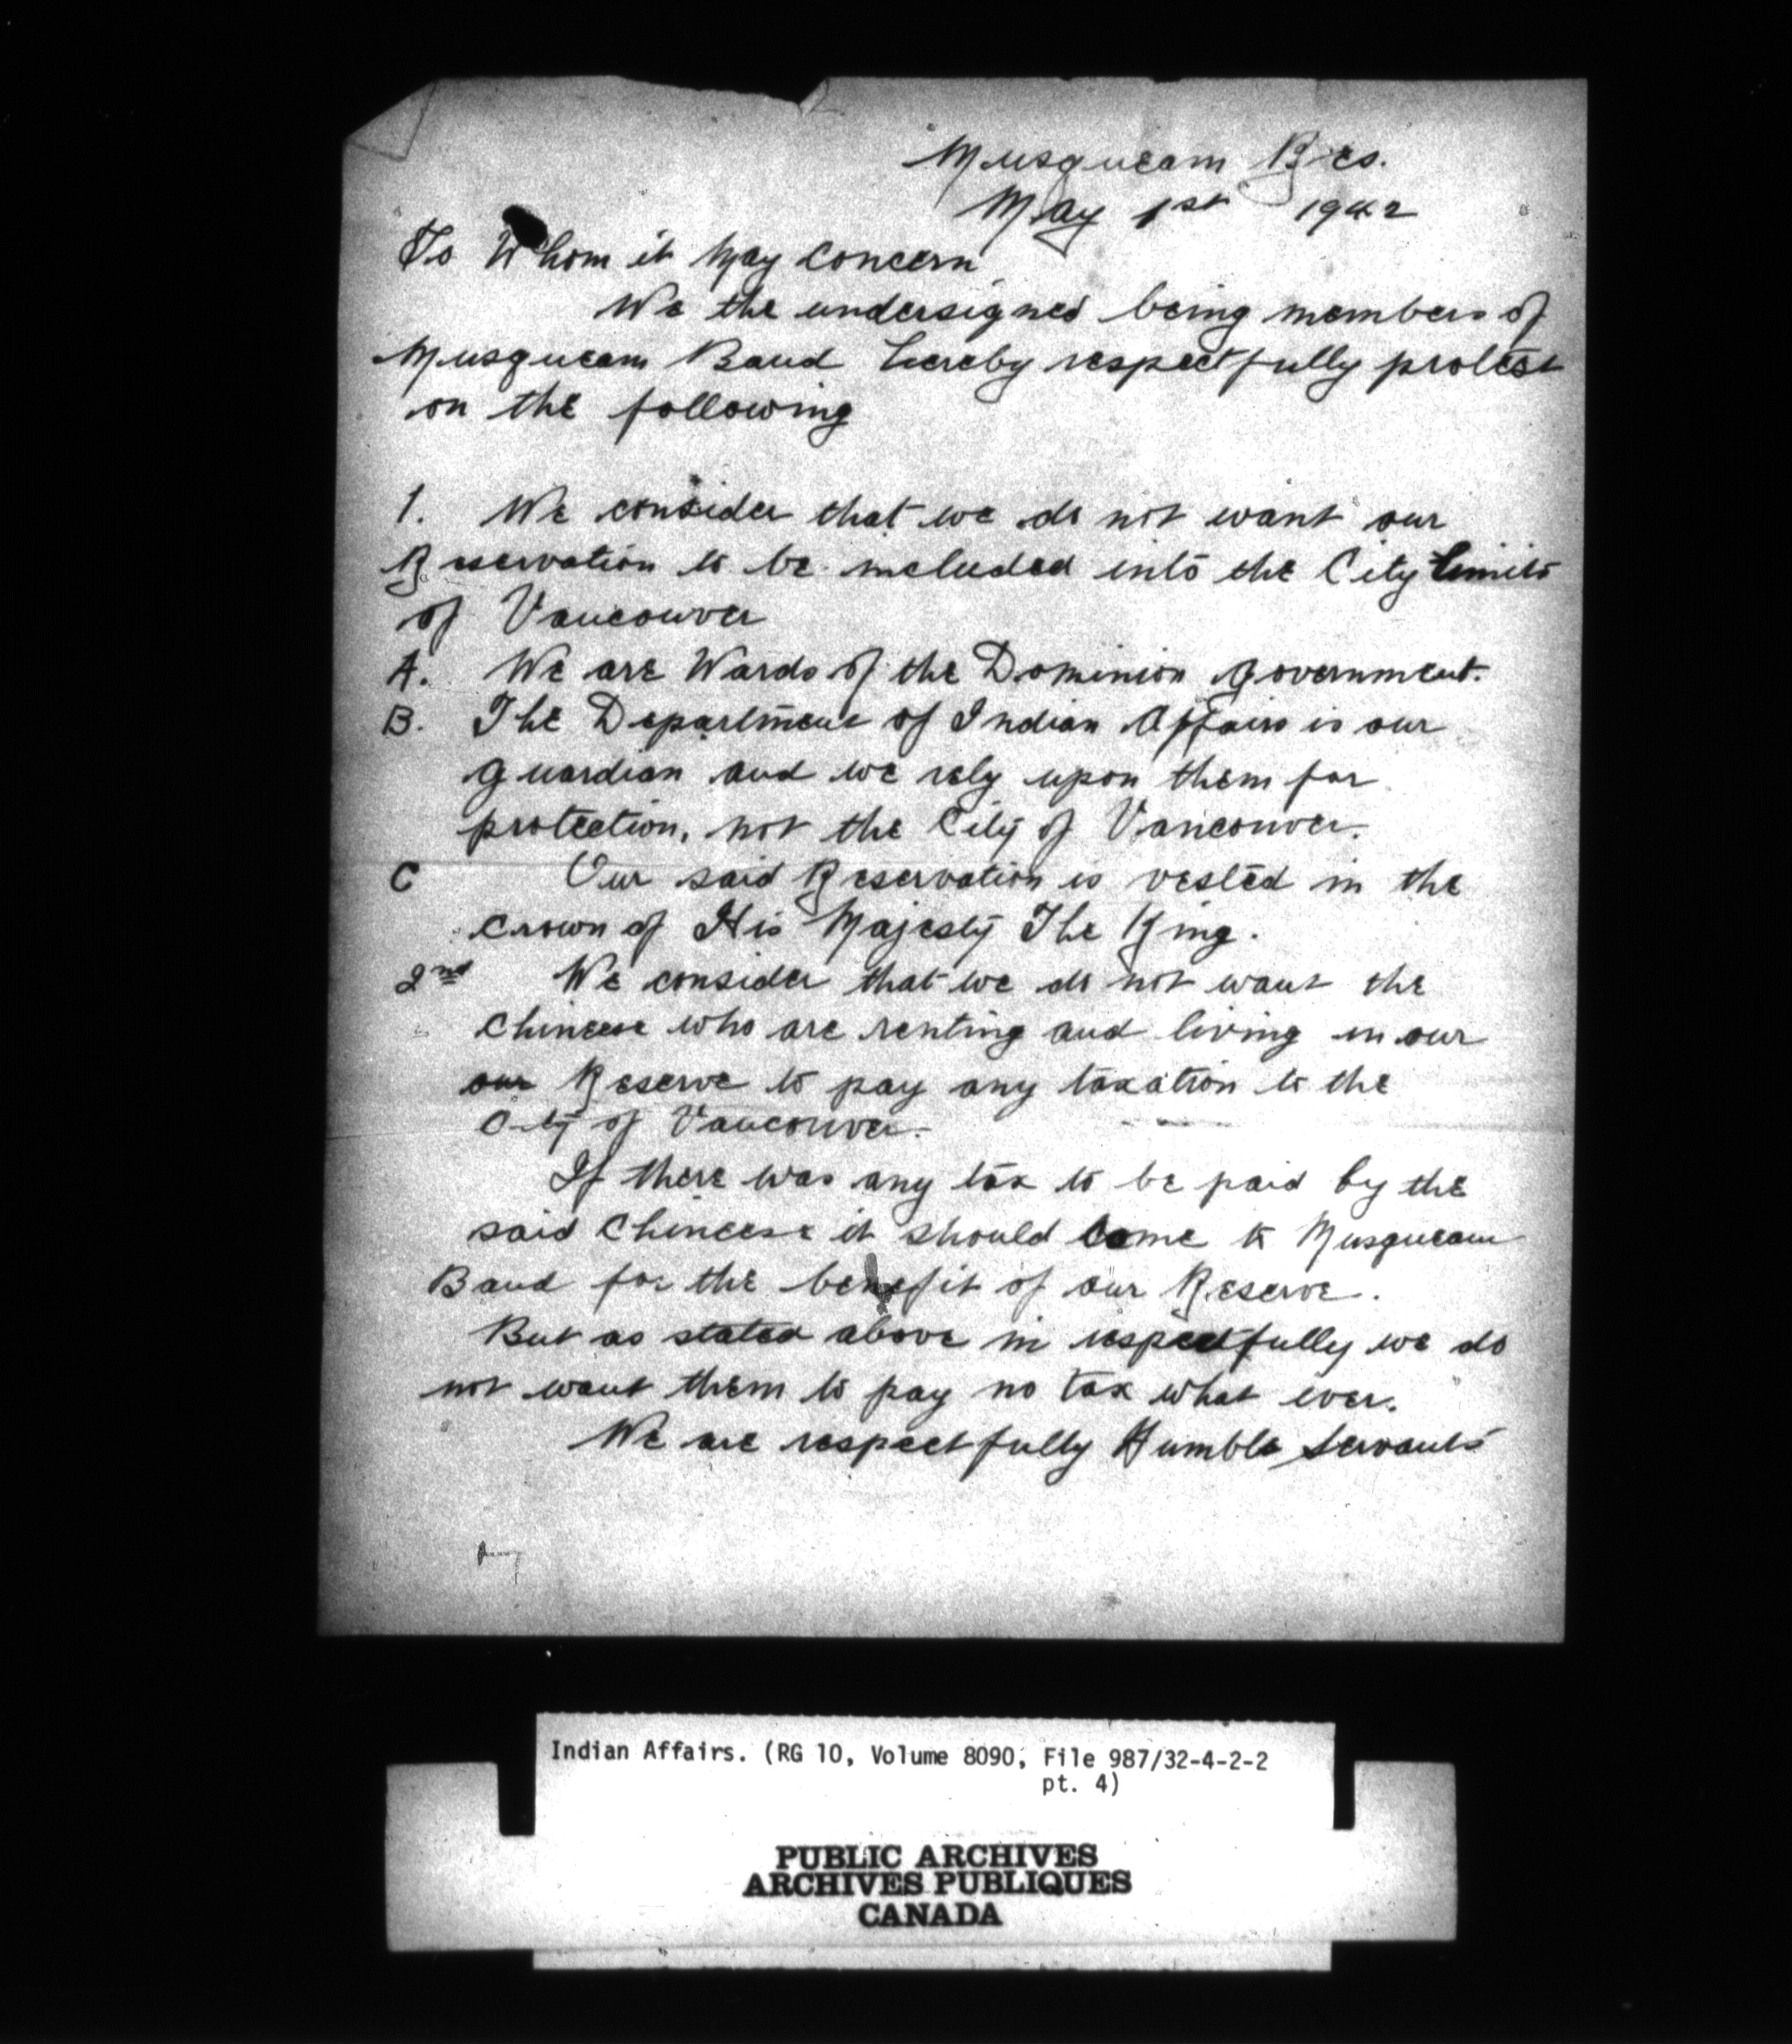 Musqueam Res.
May 1st 1942
To Whom it May Concern
We the undersigned being members of
Musqueam Band hereby respectfully protest
on the following
1. We consider that we do not want our
Reservation to be included into the City Limits
of Vancouver
A. We are Wards of the Dominion Government.
B. The Department of Indian Affairs is our
guardian and we rely upon them for
protection, not the City of Vancouver.
C Our said Reservation is vested in the
Crown of His Majesty The King.
2nd We consider that we do not want the
Chineese who are renting and living in our
our Reserve to pay any taxation to the
City of Vancouver.
If there was any tax to be paid by the
said Chineese it should come to Musqueam
Band for the benefit of our Reserve.
But as stated above in respectfully we do
not want them to pay no tax what ever.
We are respectfully Humble Servants
Indian Affairs. (RG 10, Volume 8090, File 987/32-4-2-2
pt. 4)
PUBLIC ARCHIVES
ARCHIVES PUBLIQUES
CANADA